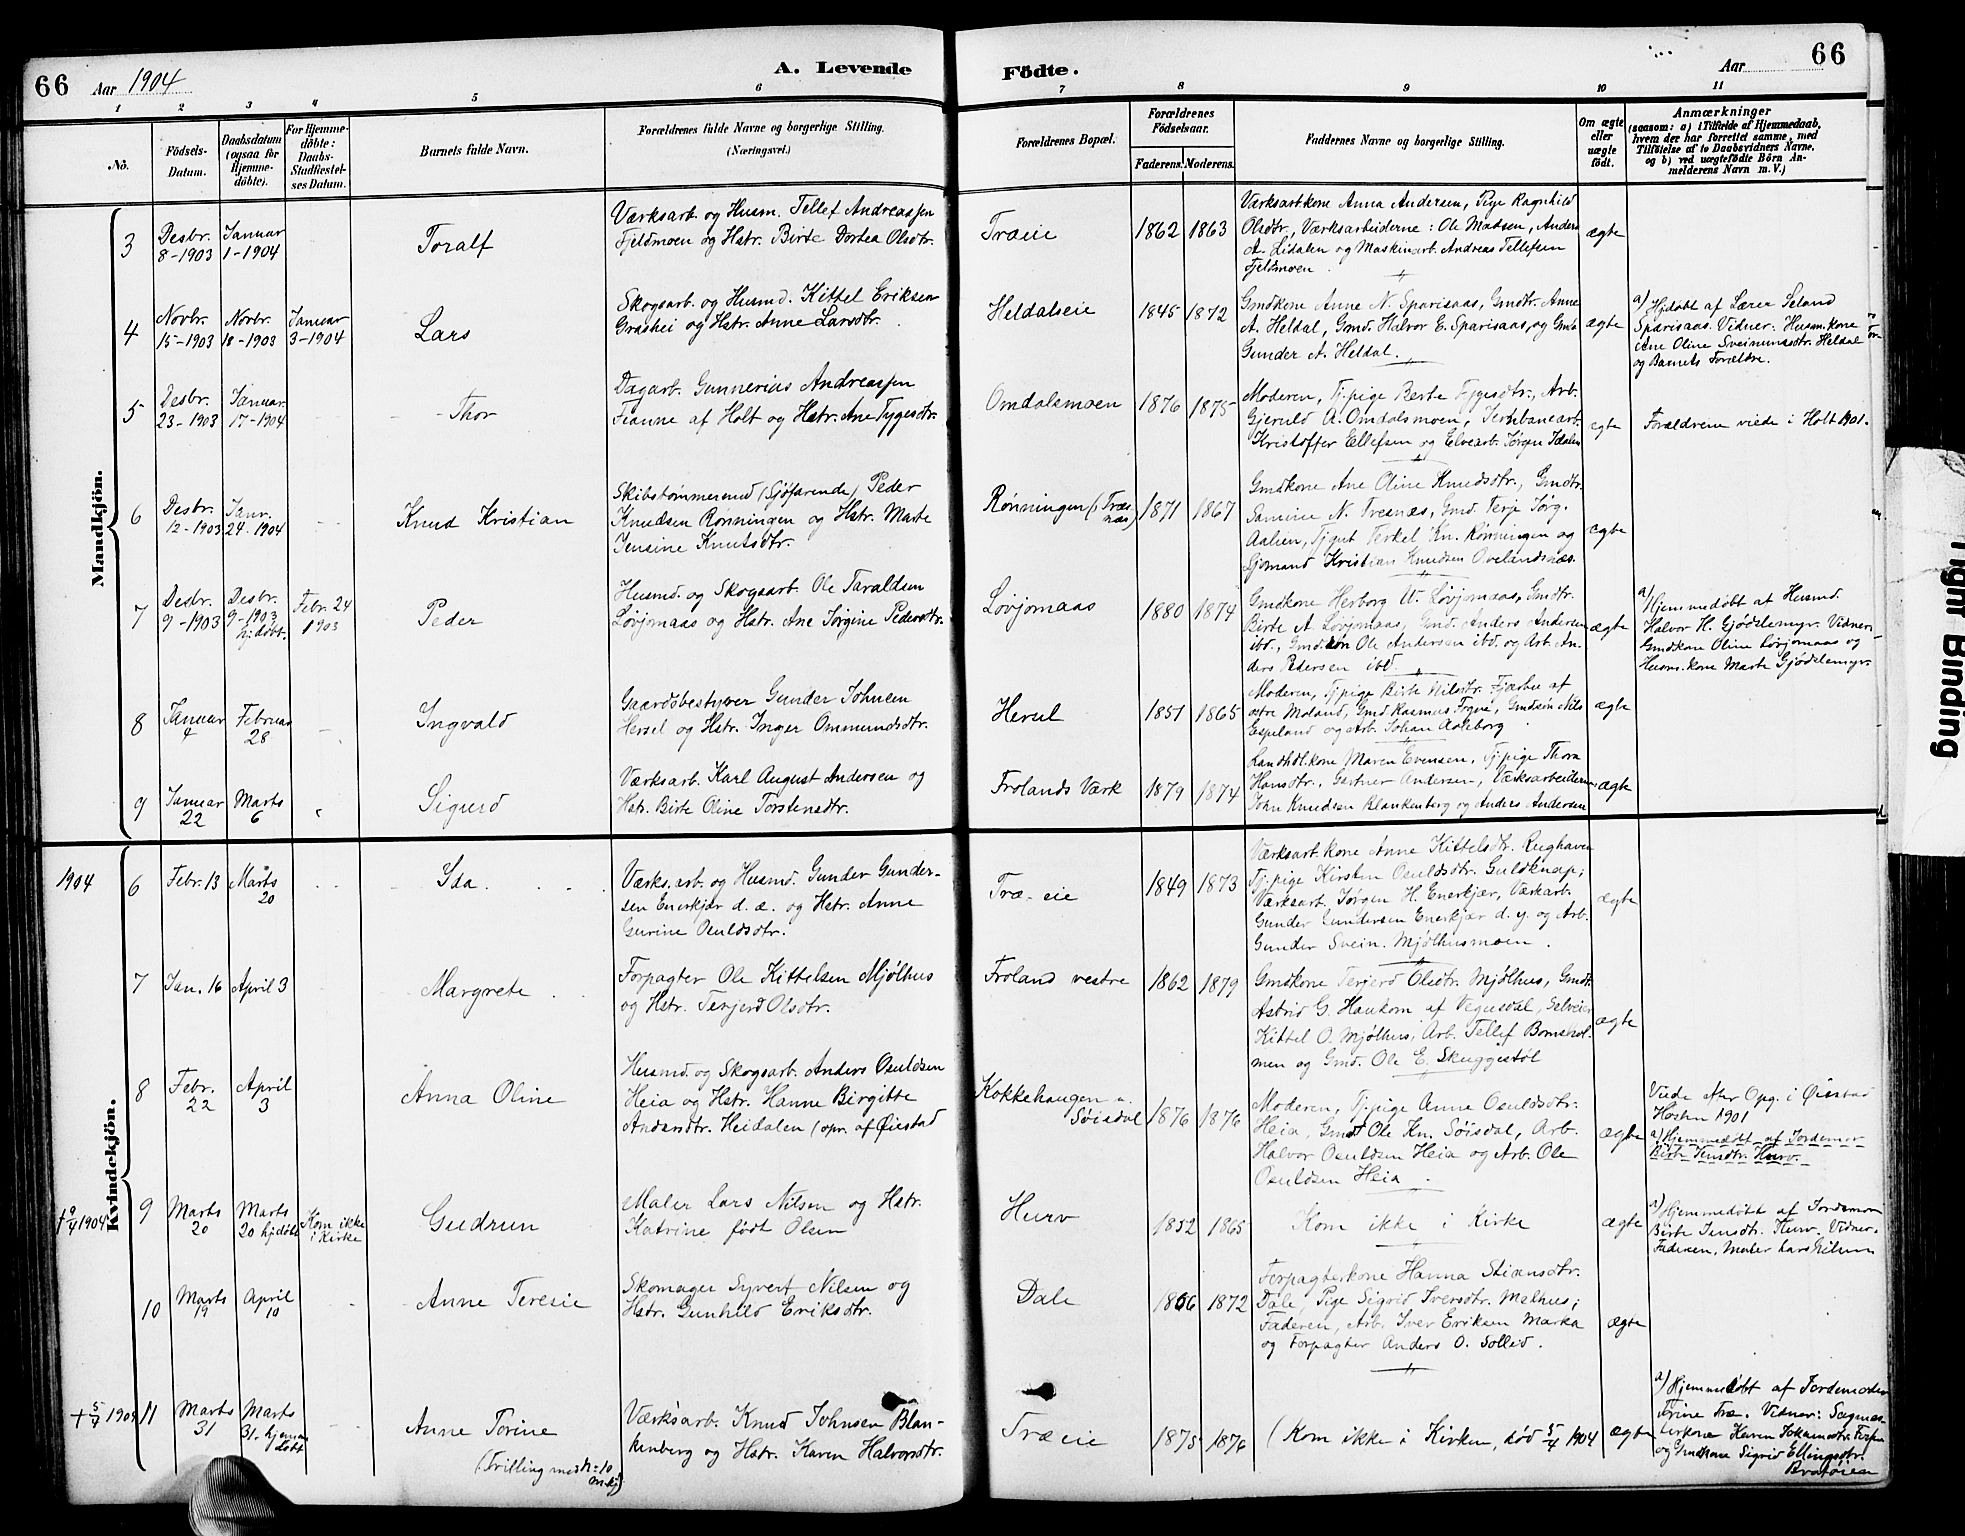 66 Aar 1904 A. Levende Födte. Aar 66
1 2 3 4 5 6 7 8 9 10 11
No.
Födsels-Datum.
Daabsdatum (ogsaa for Hjemmedöbte).
For Hjemmedöbte: Daabs-Stadfæstelses Datum.
Barnets fulde Navn.
Forældrenes fulde Navne og borgerlige Stilling.
(Næringsvei.)
Forældrenes Bopæl.
Forældrenes Födselsaar.
Faderens. Moderens.
Faddernes Navne og borgerlige Stilling.
Om ægte eller uægte födt.
Anmærkninger
(saasom: a) i Tilfælde af Hjemmedaab,
hvem der har forrettet samme, med
Tilföielse af to Daabsvidners Navne,
og b) ved uægtefödte Börn Anmelderens Navn m. V.)
Mandkjön.
3 Desbr. 8-1903 Januar 1-1904 Toralf
Værksarb. og Husm. Tellef Andreassen
Fjeldmoen og Hstr. Birte Dortea Olsdtr.
Træeie 1862 1863
Værksarb.kone Anna Andersen, Pige Ragnhild
Olsdtr., Værksarbeiderne: Ole Madsen, Anders
A. Lidalen og Maskinarb. Andreas Tellefsen
Fjeldmoen
ægte
4 Novbr. 15-1903 Novbr. 18-1903 Januar 3-1904 Lars
Skogsarb. og Husmd. Kittel Eriksen
Græshei og Hstr. Anne Larsdtr.
Heldalseie 1845 1872
Gmdkone Anne N. Sparisaas, Gmdtr. Anne
A. Heldal, Gmd. Halvor E. Sparisaas, og Gmd.
Gunder A. Heldal.
ægte
a) Hjdøbt af Lærer Seland
Sparisaas. Vidner: Husm.kone
Ane Oline Sveinunsdtr. Heldal
og Barnets Forældre.
5 Desbr. 23-1903 Januar 17-1904 Thor
Dagarb. Gunnerius Andreassen
af Holt og Hstr. Ane Tygesdtr.
Omdalsmoen 1876 1875
Moderen, Tj.pige Berte Tygesdtr., Arb.
Gjeruld A. Omdalsmoen, Jernbanearb.
Kristoffer Ellefsen og Elvearb. Jørgen Idalen
ægte
Forældrene viede i Holt 1901.
6 Desbr. 12-1903 Janr. 24-1904 Knud Kristian
Skibstømmermd (Sjøfarende) Peder
Knudsen Rønningen og Hstr. Marte
Jensine Knutsdtr.
Rønningen (Træsnæs) 1871 1867
Gmdkone Ane Oline Knudsdtr., Gmdtr.
Samine N. Tresnæs, Gmd. Terje Jørg.
Aalien, Tjgut Terkel Kn. Rønningen og
Sjømand Kristian Knudsen Ovelandsnæs.
ægte
7 Desbr. 9-1903 Desbr. 9-1903 hjdøbt. Febr. 24 1903 Peder
Husmd. og Skogsarb. Ole Taraldsen
Løvjomaas og Hstr. Ane Jørgine Pedersdtr.
Løvjomaas 1880 1874
Gmdkone Herborg W. Løvjomaas, Gmdtr.
Birte A Løvjomaas, Gmd. Anders Andersen
ibd., Gmd.søn Ole Andersen ibd. og Arb. Anders
Pedersen ibd.
ægte
a) Hjemmedøbt af Husmd.
Halvor H. Gjødslemyr. Vidner:
Gmdkone Oline Løvjomaas og
Husm.kone Marte Gjødslemyr.
8 Januar 4 Februar 28 Ingvald
Gaardsbestyrer Gunder Johnsen
Hersel og Hstr. Inger Ommundsdtr.
Hersel 1851 1865
Moderen, Tj.pige Birte Nilsdtr. Fjærbu af
østre Moland, Gmd Rasmus Togvæ, Gmdsøn Nils
Espeland og Arb. Johan Aalsborg
ægte
9 Januar 22 Marts 6 Sigurd
Værksarb. Karl August Andersen og
Hstr. Birte Oline Torstensdtr.
Frolands Værk 1879 1874
Landhdl.kone Maren Evensen, Tj.pige Thora
Hansdtr., Gartner Andersen, Værksarbeiderne
John Knudsen Blankenberg og Anders Andersen
ægte
Kvindekjön.
1904 6 Febr. 13 Marts 20 Ida
Værks.arb. og Husmd. Gunder Gundersen
Enerkjær d. æ. og Hstr. Anne
Gurine Osuldsdtr.
Træ-eie 1849 1873
Værksarb.kone Anne Kittelsdtr. Rughaven
Tj.pige Kirsten Osuldsdtr. Guldknap;
Værksarb. Jørgen H. Enerkjær, Værkarb.
Gunder Gundersen Enerkjær d. y. og Arb.
Gunder Svein. Mjølhusmoen.
ægte
7 Jan. 16 April 3 Margrete
Forpagter Ole Kittelsen Mjølhus
og Hstr. Terjerd Olsdtr.
Froland vestre 1862 1879
Gmdkone Terjerd Olsdtr. Mjølhus, Gmdtr.
Astrid G. Haukom af Vegusdal, Selveier
Kittel O. Mjølhus, Arb. Tellef Bomsholmen
og Gmd. Ole E. Skuggestøl
ægte
8 Febr. 22 April 3 Anna Oline
Husmd. og Skogsarb. Anders Osuldsen
Heia og Hstr. Hanne Birgitte
Andersdtr. Heidalen (opr. af Øiestad
Kokkehaugen u. Søisdal 1876 1876
Moderen, Tj.pige Anne Osuldsdtr.
Heia, Gmd Ole Kn. Søisdal, Arb.
Halvor Osuldsen Heia og Arb. Ole
Osuldsen Heia.
ægte
Viede efter Opg. i Øiestad
Høsten 1901
a) Hjemmedøbt af Jordemor
Birte Jensdtr. Hurv.
† 9/4 1904 9 Marts 20 Marts 20 hjdøbt Kom ikke i Kirke Gudrun
Maler Lars Nilsen og Hstr.
Katrine født Olsen
Hurv 1852 1865
Kom ikke i Kirke
ægte
a) Hjemmedøbt af Jordemor
Birte Jensdtr. Hurv. Vidner:
Faderen, Maler Lars Nilsen
10 Marts 19 April 10 Anne Teresie
Skomager Syvert Nilsen og
Hstr. Gunhild Eriksdtr.
Dale 1866 1872
Forpagterkone Hanna Stiansdtr.
Dale, Pige Sigrid Iversdtr. Mølhus;
Faderen, Arb. Iver Eriksen Marka
og Forpagter Anders O. Sollid.
ægte
† 5/4 1904 11 Marts 31 Marts 31. hjemmedøbt Anne Torine
(Trilling med No 10 M.kj)
Værksarb. Knud Johnsen Blankenberg
og Hstr. Karen Halvorsdtr.
Træeie 1875 1876
(Kom ikke i Kirken, død 5/4 1904
ægte
a) Hjemmedøbt af Jordemoder
Torine Træ. Vidner:
Karen Johannsdtr.
og Gmdkone Sigrid Ellingsdtr.
Bratøien
Tight Binding